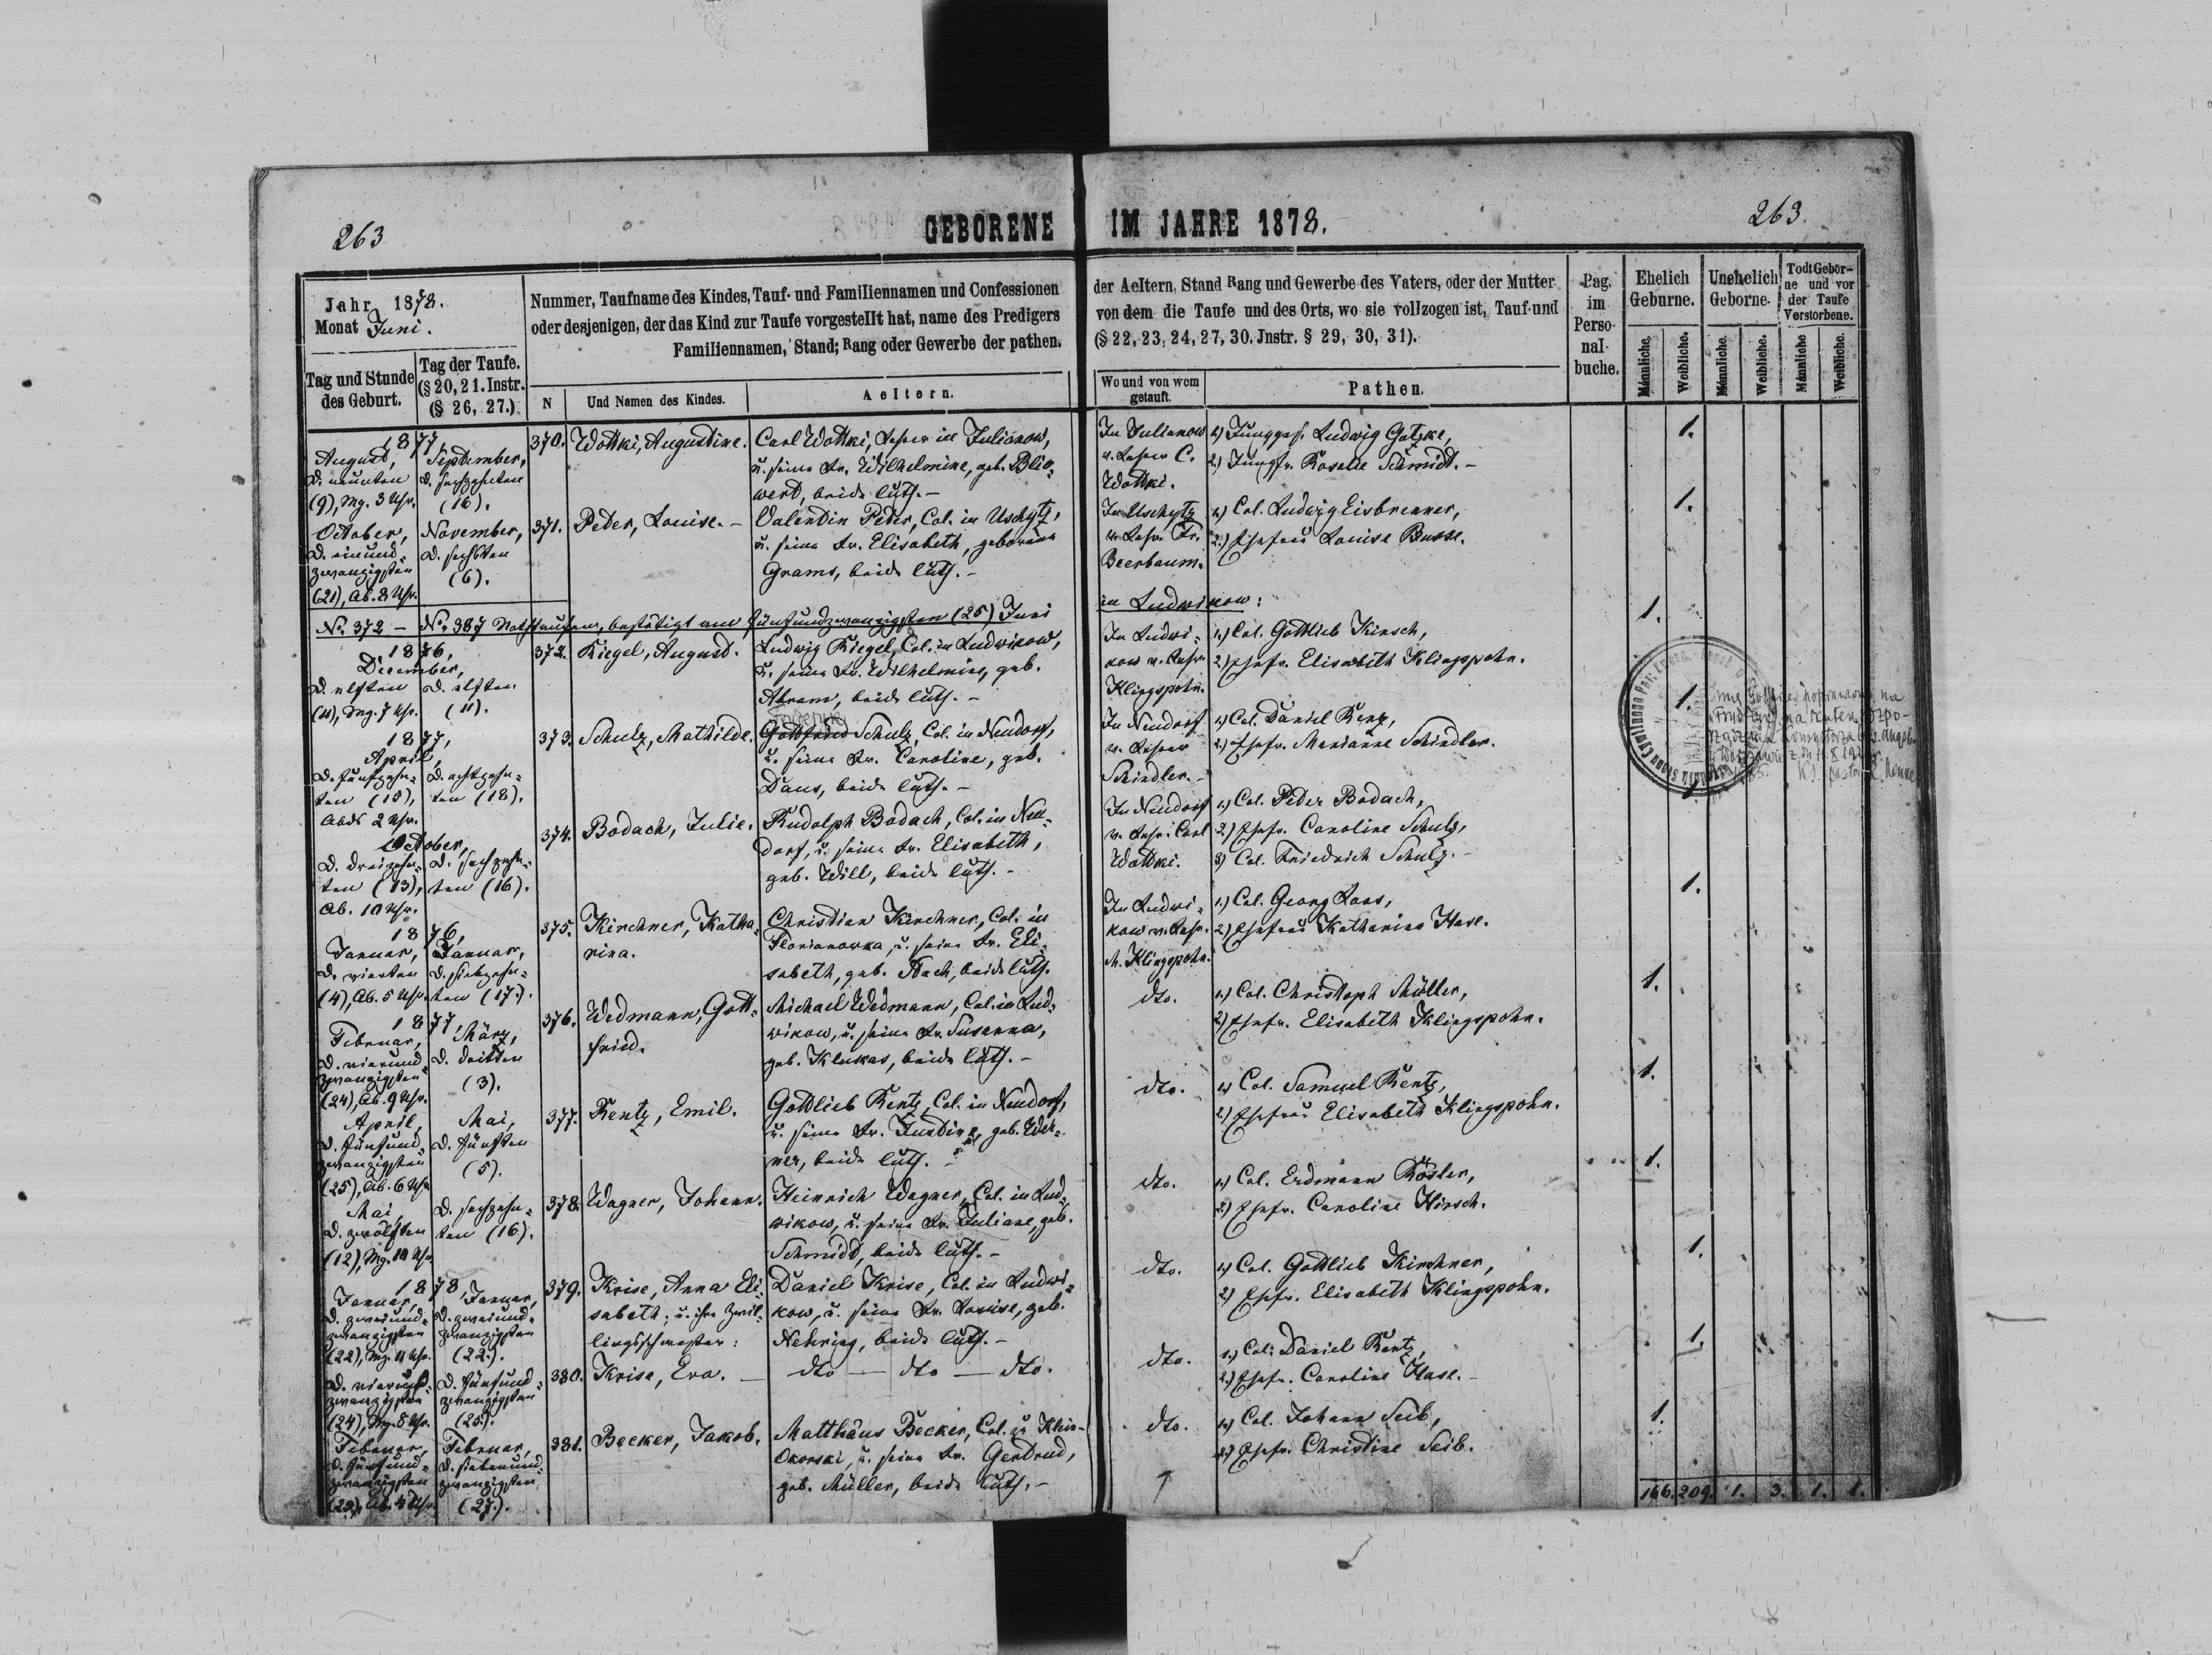 263
GEBORENE IM JAHRE 1878.
263.
Jahr 1878.
Monat Juni.
Tag und Stunde
des Geburt.
Tag der Taufe.
(§ 20, 21. Instr.
(§ 26, 27.)
Nummer, Taufname des Kindes, Tauf- und Familiennamen und Confessionen
oder desjenigen, der das Kind zur Taufe vorgestellt hat, name des Predigers
Familiennamen, Stand; Rang oder Gewerbe der pathen.
N
Und Namen des Kindes.
Aeltern.
der Aeltern, Stand Rang und Gewerbe des Vaters, oder der Mutter
von dem die Taufe und des Orts, wo sie vollzogen ist, Tauf-und
(§ 22, 23, 24, 27, 30. Jnstr. § 29, 30, 31).
Wo und von wem
getauft.
Pathen.
Pag.
im
Perso-
nal-
buche.
Ehelich
Geburne.
Unehelich
Geborne.
Todt Gebor-
ne und vor
der Taufe
Verstorbene.
Männliche.
Weibliche.
Männliche.
Weibliche.
Männliche
Weibliche.
1877,
August,
D. neunten
(9), Mg. 3 Uhr.
September,
D. sechzehnten
(16).
370.
Wottki, Augustine.
Carl Wottki, Lehrer in Julianow,
u. seine Fr. Wilhelmine, geb. Blie-
wert, beide luth. -
In Julianow
v. Lehrer C.
Wottki.
1.) Junggs. Ludwig Gatzke,
2.) Jungfr. Rosalie Schmidt. -
1.
October,
D. einund-
zwanzigsten
(21), Ab. 8 Uhr.
November,
D. sechsten
(6).
371.
Peder, Louise. -
Valentin Peder, Col. in Uschytz,
u. seine Fr. Elisabeth, geborene
Grams, beide luth. -
In Uschytz
v. Lehr. Fr.
Beerbaum.
1.) Col. Ludwig Eisbrenner,
2.) Ehefrau Louise Busse.
1.
No. 372 - No. 387 Nothtaufen, bestätigt am fünfundzwanzigsten (25) Juni in Ludwikow:
1876,
December,
D. elften
(11), Mg. 7 Uhr.
D. elften
(11).
372.
Kiegel, August.
Ludwig Kiegel, Col. in Ludwikow,
u. seine Fr. Wilhelmine, geb.
Abram, beide luth. -
In Ludwi-
kow v. Lehr.
Klingspohn.
1.) Col. Gottlieb Kirsch,
2.) Ehefr. Elisabeth Klingspohn.
1.
1877,
April,
D. fünfzehn-
ten (15),
Abds 2 Uhr.
D. achtzehn-
ten (18).
373.
Schulz, Mathilde.
Gottfried Schulz, Col. in Neudorf,
u. seine Fr. Caroline, geb.
Daus, beide luth. -
In Neudorf
v. Lehrer
Schindler. -
1.) Col. Daniel Rentz,
2.) Ehefr. Marianne Schindler.
1.
October,
D. dreizehn-
ten (13),
Ab. 10 Uhr.
D. sechzehn-
ten (16).
374.
Bodach, Julie.
Rudolph Bodach, Col. in Neu-
dorf, u. seine Fr. Elisabeth,
geb. Will, beide luth. -
In Neudorf
v. Lehr. Carl
Wottki.
1.) Col. Peder Bodach,
2.) Ehefr. Caroline Schulz,
3.) Col. Friedrich Schulz. -
1
1876,
Januar,
D. vierten
(4), Ab. 5 Uhr.
Januar,
D. siebzehn-
ten (17.).
375.
Kirchner, Katha-
rina.
Christian Kirchner, Col. in
Florianowka, u. seine Fr. Eli-
sabeth, geb. Stach, beide luth.
In Ludwi-
kow v. Lehr.
M. Klingspohn.
1.) Col. Georg Laas,
2.) Ehefrau Katharina Hase.
1.
1877,
Februar,
D. vierund-
zwanzigsten
(24), Ab. 9 Uhr.
März,
D. dritten
(3).
376.
Wedmann, Gott-
fried.
Michael Wedmann, Col. in Lud-
wikow, u. seine Fr. Susanna,
geb. Klukas, beide luth. -
dto.
1.) Col. Christoph Müller,
2.) Ehefr. Elisabeth Klingspohn.
1.
April,
D. fünfund-
zwanzigsten
(25), Ab. 6 Uhr
Mai,
D. fünften
(5).
377.
Rentz, Emil.
Gottlieb Rentz, Col. in Neudorf,
u. seine Fr. Justine, geb. Wer-
ner, beide luth. -
dto.
1.) Col. Samuel Rentz,
2.) Ehefrau Elisabeth Klingspohn.
1.
Mai,
D. zwölften
(12), Mg. 10 Uhr
D. sechzehn-
ten (16).
378.
Wagner, Johann.
Heinrich Wagner, Col. in Lud-
wikow, u. seine Fr. Juliane, geb.
Schmidt, beide luth. -
dto.
1.) Col. Erdmann Rösler,
2.) Ehefr. Caroline Hirsch.
1.
1878,
Januar,
D. zweiund-
zwanzigsten
(22), Mg. 4 Uhr.
Januar,
D. zweiund-
zwanzigsten
(22.).
379.
Krise, Anna Eli-
sabeth; u. ihre Zwil-
lingsschwester:
Daniel Krise, Col. in Ludwi-
kow, u. seine Fr. Louise, geb.
Nehring, beide luth. -
dto.
1.) Col. Gottlieb Kirchner,
2.) Ehefr. Elisabeth Klingspohn.
1.
D. vierund-
zwanzigsten
(24), Mg. 8 Uhr.
D. fünfund-
zwanzigsten
(25).
380.
Krise, Eva. -
dto - dto - dto.
dto.
1.) Col. Daniel Rentz,
2.) Ehefr. Caroline Hase. -
1.
Februar,
D. fünfund-
zwanzigsten
(25), Ab. 4 Uhr.
Februar,
D. siebenund-
zwanzigsten
(27.).
381.
Becker, Jakob.
Matthäus Becker, Col. in Klein-
Okorski, u. seine Fr. Gertrud,
geb. Müller, beide luth. -
dto.
1.) Col. Johann Seib,
2.) Ehefr. Christine Seib.
1.
166. 209. 1. 3. 1. 1.